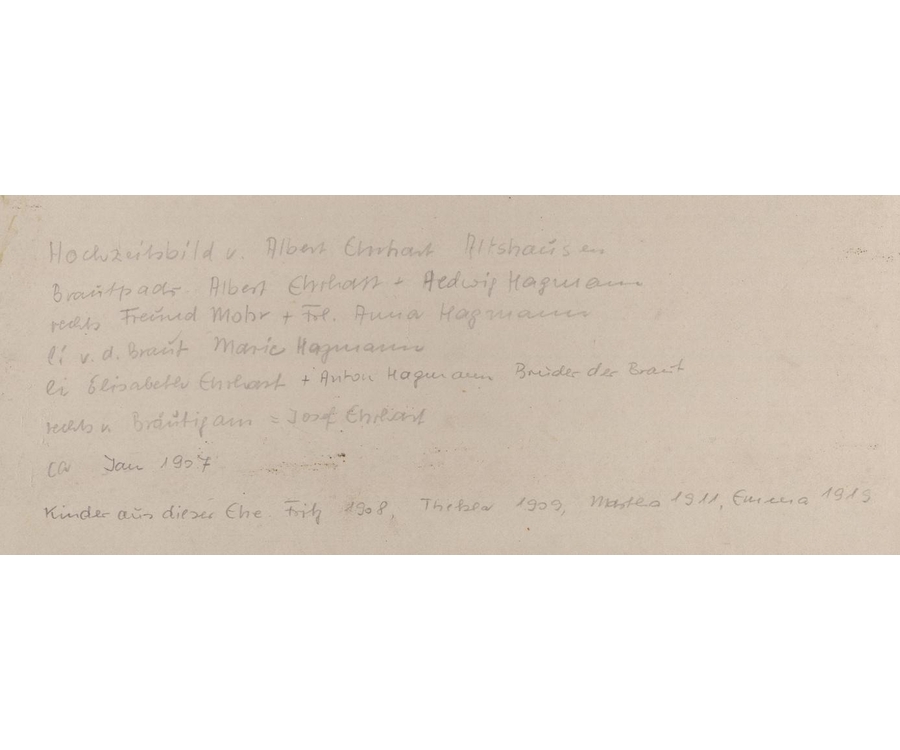 Hochzeitsbild v. Albert Ehrhart Altshausen
Brautpaar Albert Ehrhart + Hedwig Hagmann
rechts Freund Mohr + Frl. Anna Hagmann
li v. d. Braut Marie Hagmann
li Elisabeth Ehrhart + Anton Hagmann Bruder der Braut
rechts v. Bräutigam = Josef Ehrhart
ca Jan 1907
Kinder aus dieser Ehe Fritz 1908, 1909, 1911, Emma 1919